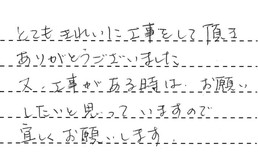 とてもきれいに工事をして頂き
ありがとうございました
又、工事がある時は、お願い
したいと思っていますので
宜しくお願いします